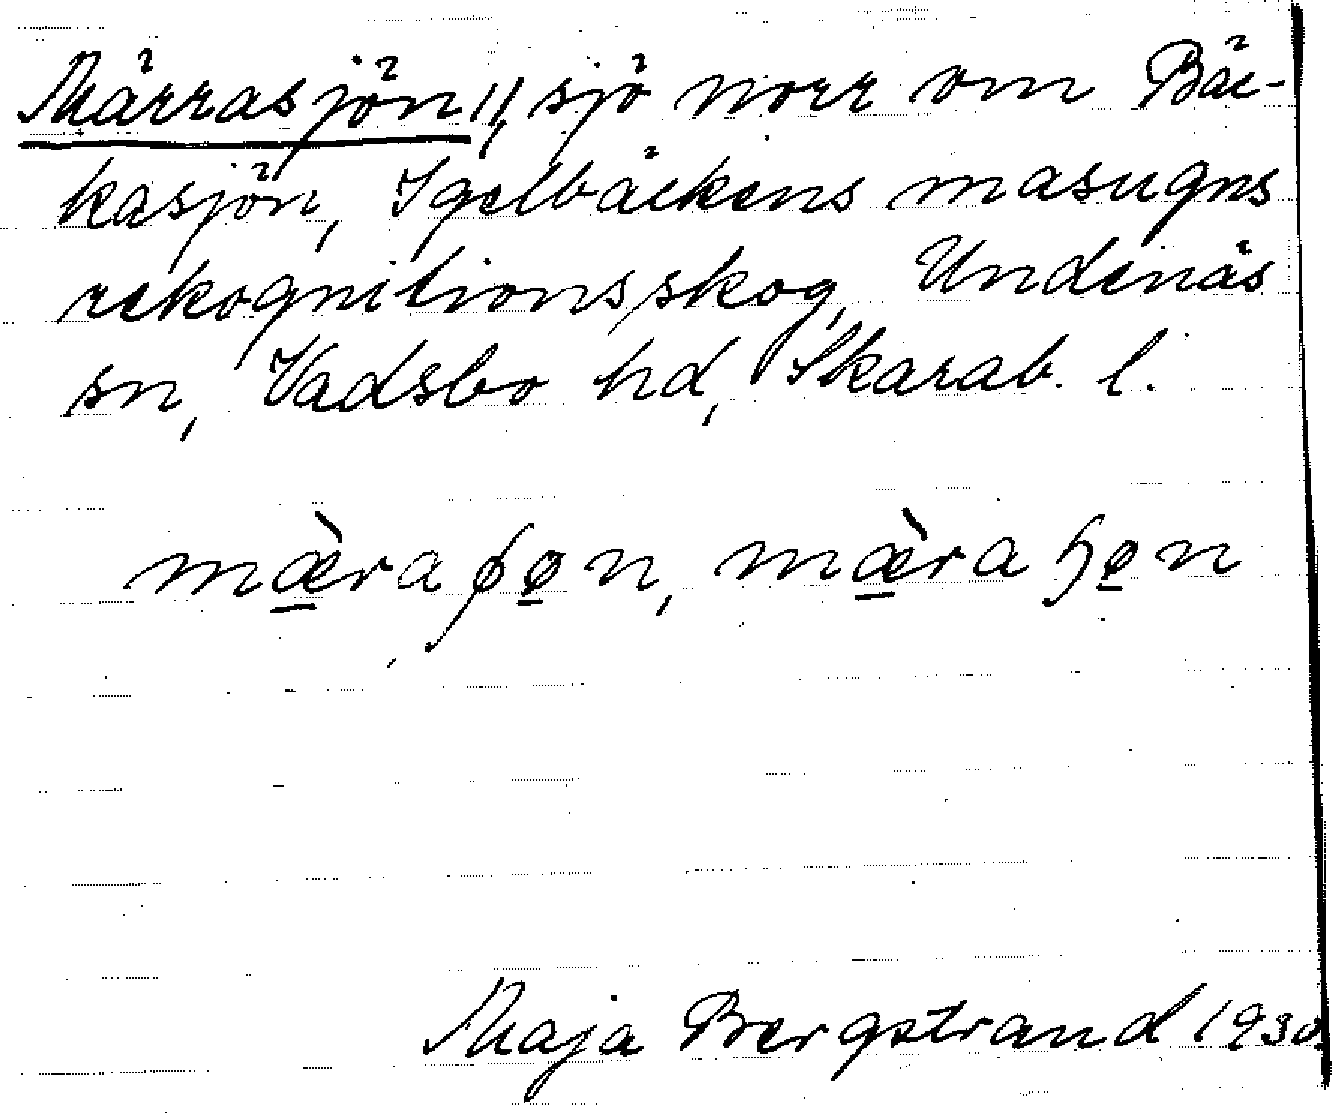 Märrasjön 1/, sjö norr om Bäc-
kasjön, Igelbäckens masugns
rekognitionsskog, Undenäs
sn, Vadsbo hd, Skarab. l.
mæ̀raʃøn, mæ̀raɧøn
Maja Bergstrand 1930.